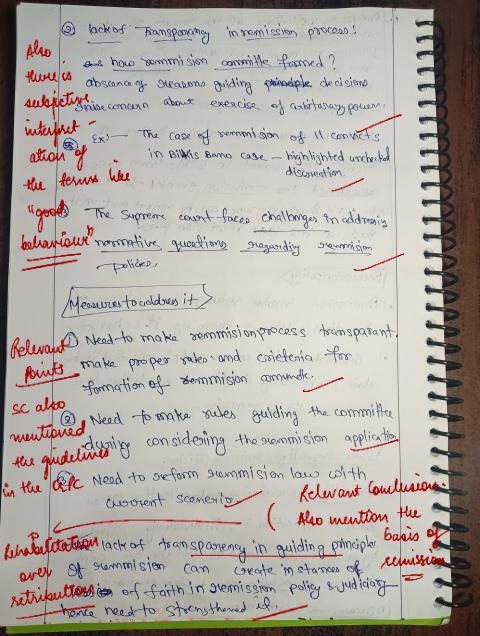 ② lack of Transparency in remission process!
how remmision committe formed?
absence of reasons guiding principle decisions
raise concern about exercise of arbitrary power.
Ex:- The case of remmision of 11 convicts
in Bilkis Bano case - highlighted unchecked
discreation.
③ The Supreme court faces challenges in addressing
normative questions regarding remmision
policies.
Also
there is
subjective
interpret-
ation of
the terms like
"good
behaviour"
Measures to address it
① Need to make remmision process transparant.
make proper rules and crieteria for
formation of remmision commette.
② Need to make rules guiding the committee
during considering the remmision application
③ Need to reform remmision law with
current scenerio.
Relevant
Points
SC also
mentioned
the guidelines
in the CrPC
Relevant Conclusion.
Also mention the
basis of
remission
lack of transparency in guiding principle
of remmision can create instances of
loss of faith in remission policy & judiciary
hence need to strengthened it.
Rehabilitation
over
retribution